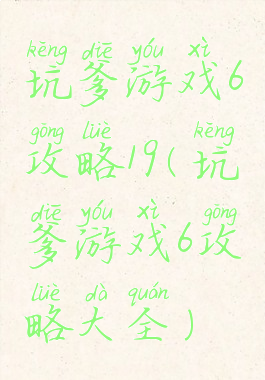 kēng diē yóu xì
坑爹游戏6
gōng lüè kēng
攻略19(坑
diē yóu xì gōng
爹游戏6攻
lüè dà quán
略大全)